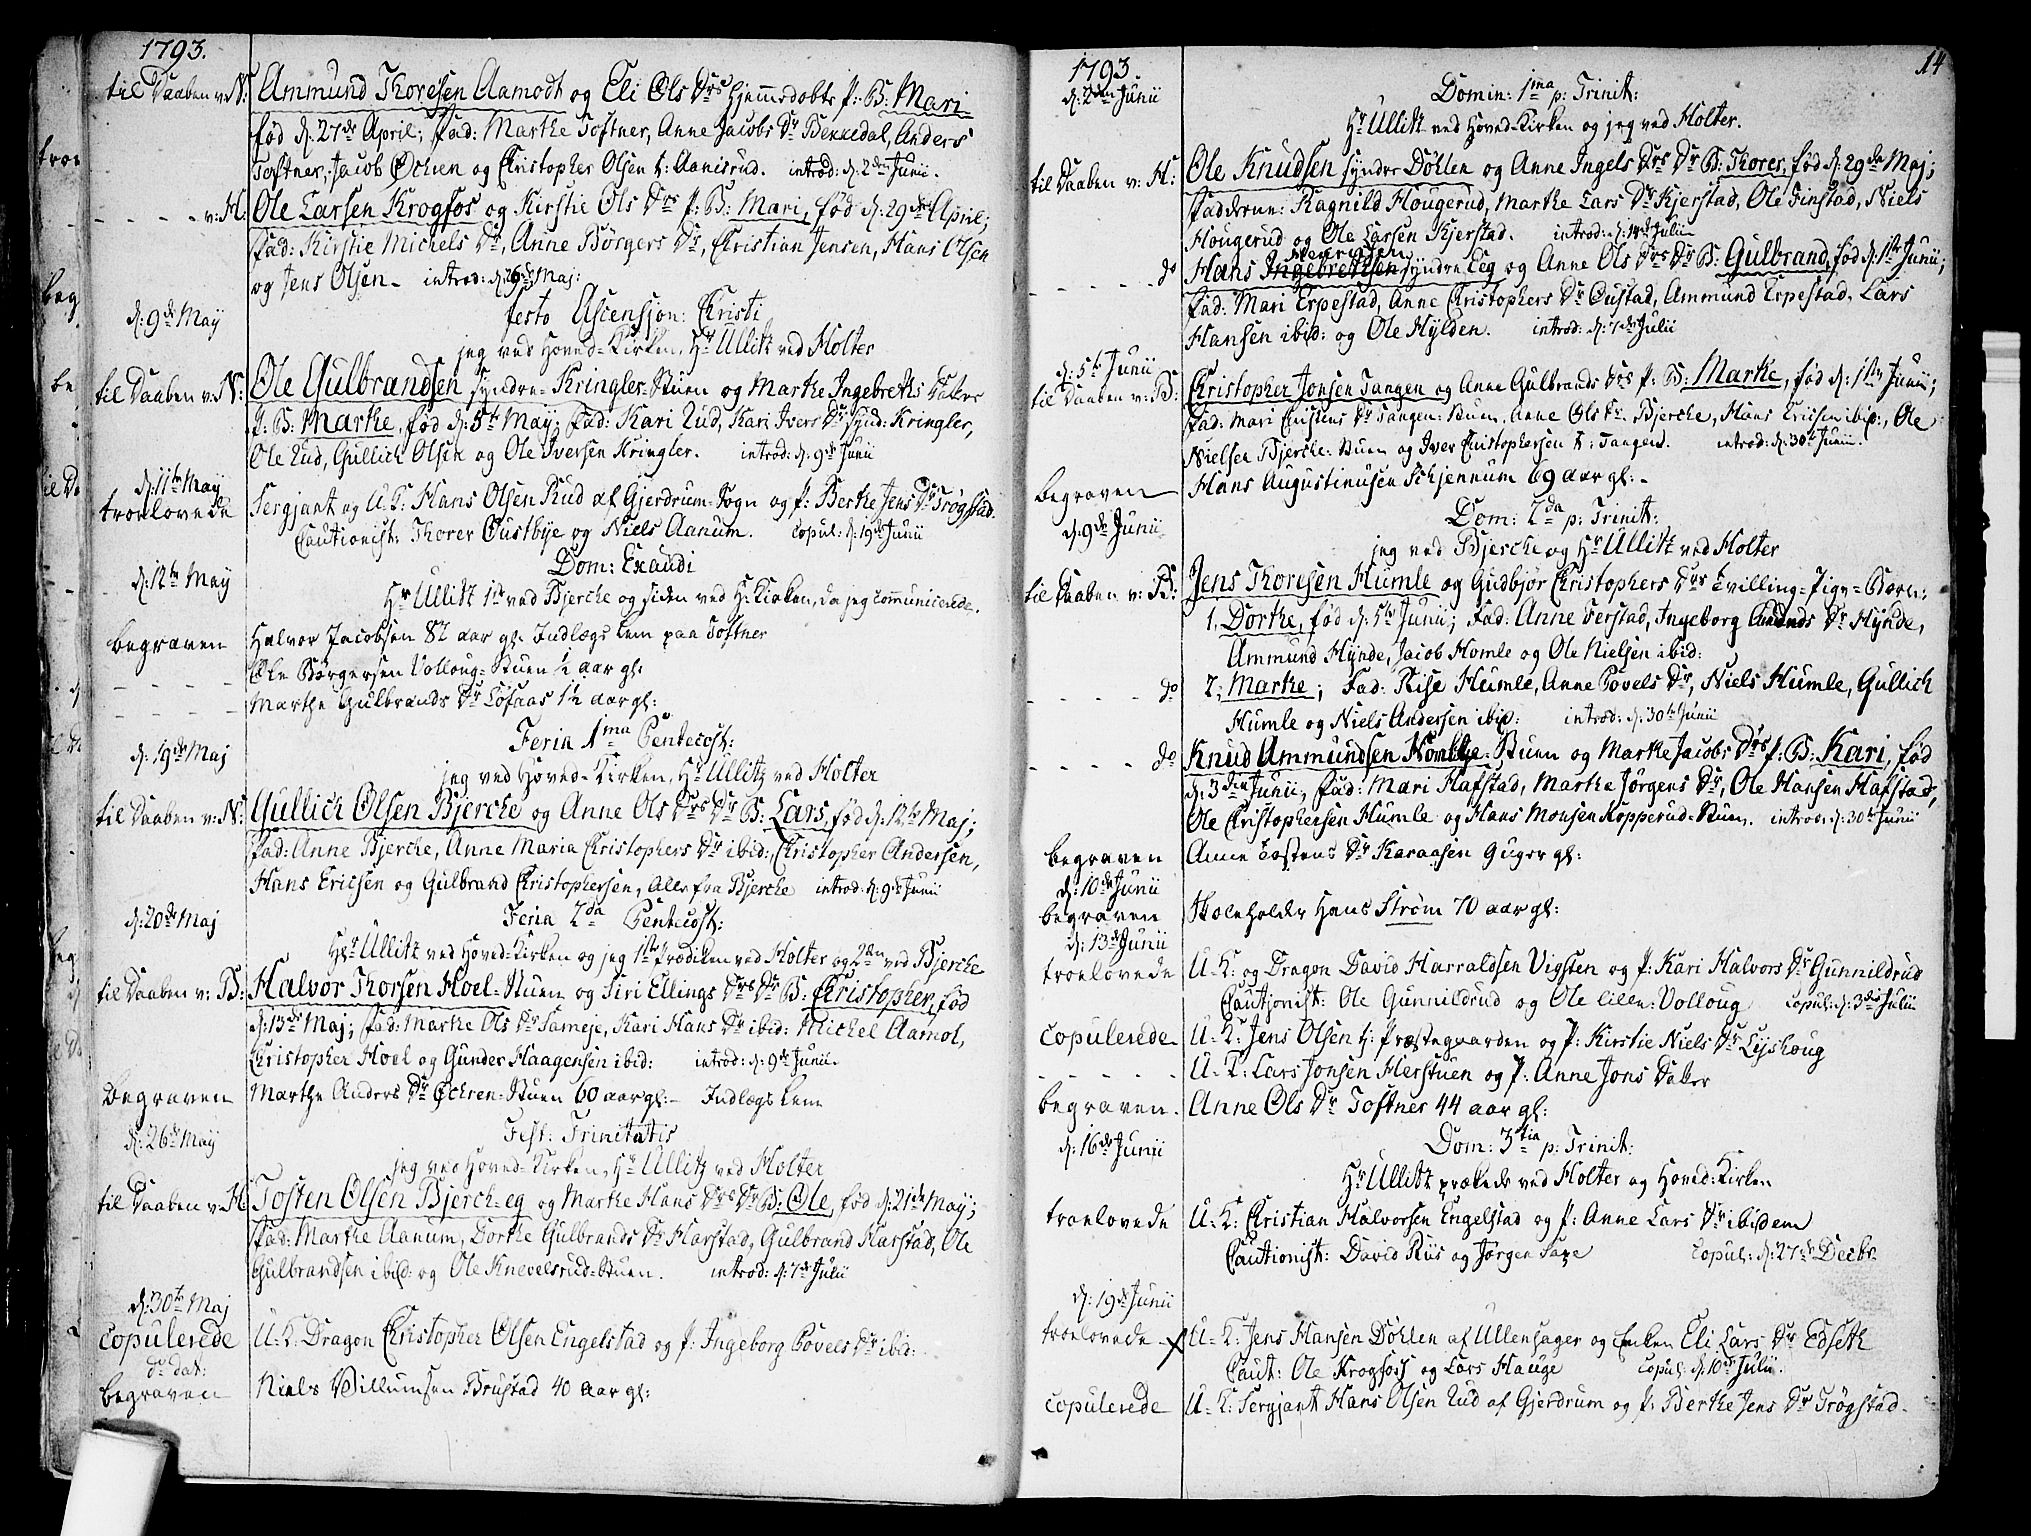 1793.
til Daaben v: N: Ammund Thoresen Aamodt og Eli Ols Drs hjemmedøbte P: B: Mari
fød d: 27de April; Fad: Marthe Toftner, Anne Jacobs Dr Bekkedal, Anders
Toftner, Jacob Ochren og Christopher Olsen t: Aanisrud. introd: d: 2den Junii.
- - - - v: H: Ole Larsen Krogfos og Kirstie Ols Drs P: B: Mari, fød d: 29de April;
Fad: Kirstie Michels Dr, Anne Børgers Dr, Christian Jensen, Hans Olsen
og Jens Olsen. introd: d: 26de Maj:
d: 9de May festo Ascensjon: Christi
jeg ved Hoved-Kirken, Hr Ullitz ved Holter
til Daaben v: N: Ole Gulbrandsen syndre-Kringler-Stuen og Marthe Ingebreths Datters
P: B: Marthe, fød d: 5te May; Fad: Kari Rud, Kari Ivers Dr synd: Kringler,
Ole Rud, Gullich Olsen og Ole Iversen Kringler. introd: d: 9de Junii
d: 11te May
troelovede Sergjant og U: K: Hans Olsen Rud af Gjerdrum-Sogn og P: Berthe Jens Dr Trøgstad.
Cautionist: Thorer Oustbye og Niels Aanum. Copul: d: 19de Junii
d: 12te May Dom: Exaudi
Hr Ullitz 1st ved Bjercke og siden ved H: Kirken, da jeg communicerede.
begraven Halvor Jacobsen 82 aar gl: Indlægs Lem paa Toftner
Ole Børgersen Volloug-Stuen ½ aar gl:
- - - - Marthe Gulbrands Dr Lofaas 1½ aar gl:
Feria 1ma Pentecost:
d: 19de Maj jeg ved Hoved-Kirken, Hr Ullitz ved Holter
til Daaben v: N: Gullich Olsen Bjercke og Anne Ols Drs Dr B: Lars, fød d: 12te Maj;
Fad: Anne Bjercke, Anne Maria Christophers Dr ibid:, Christopher Andersen,
Hans Ericsen og Gulbrand Christophersen, alle fra Bjercke introd: d: 9de Junii
d: 20de Maj Feria 2da Pentecost:
Hr Ullitz ved Hoved-Kirken og jeg 1ste Prædiken ved Holter og 2den ved Bjercke
til Daaben v: B: Halvor Thorsen Hoel-Stuen og Siri Ellings Drs Dr B: Christopher, fød
d: 13de Maj; Fad: Marthe Ols Dr Sameje, Kari Hans Dr ibid: Michel Aamot,
Christopher Hoel og Gunder Haagensen ibid: introd: d: 9de Junii.
begraven Marthe Anders Dr Ochren-Stuen 60 aar gl:- Indlægs Lem
d: 26de May Fest: Trinitatis
jeg ved Hoved-Kirken, Hr Ullitz ved Holter
til Daaben v: H: Tosten Olsen Bjerck-eg og Marthe Hans Drs Dr B: Ole, fød d: 21de May;
Fad: Marthe Aanum, Dorthe Gulbrands Dr Harstad, Gulbrand Harstad, Ole
Gulbrandsen ibid: og Ole Knevelsrud-Stuen. introd: d: 7de Julii
d: 30te Maj
copulerede U: K: Dragon Christopher Olsen Engelstad og P: Ingeborg Povels Dr ibid:
do dat:
begraven Niels Villumsen Brustad 40 aar gl:
14
1793
d: 2den Junii Domin: 1ma p: Trinit:
Hr Ullitz ved Hoved-Kirken og jeg ved Holter.
til Daaben v: H: Ole Knudsen syndre Döhlen og Anne Ingels Drs Dr B: Thores, fød d: 29de Maj;
Fadderne: Ragnild Hougerud, Marthe Lars Dr Kjerstad, Ole Finstad, Niels
Hougerud og Ole Larsen Kjerstad. introd: d: 14de Julii
Henricsen
- - - - do Hans Ingebrethsen syndre Eeg og Anne Ols Drs Dr B: Gulbrand, fød d: 1ste Junii;
Fad: Mari Erpestad, Anne Christophers Dr Oustad, Ammund Erpestad, Lars
Hansen ibid: og Ole Hylden. introd: d: 7de Julii
d: 5te Junii
til Daaben v: B: Christopher Jonsen Tangen og Anne Gulbrands Drs P: B: Marthe, fød d: 1ste Junii;
Fad: Mari Enistens Dr Tangen-Stuen, Anne Ols Dr Bjercke, Hans Ericsen ibid:, Ole
Nielsen Bjercke-Stuen og Iver Christophersen t: Tangen. introd: d: 30te Junii.
begraven Hans Augustinusen Schjennum 69 aar gl:-
d: 9de Junii Dom: 2da p: Trinit:
jeg ved Bjercke og Hr Ullitz ved Holter
til Daaben v: B: Jens Thoresen Humle og Gudbjør Christophers Drs tvilling-Pige-Børn:
1. Dorthe, fød d: 5te Junii; Fad: Anne Ferstad, Ingeborg Amunds Dr Hynde,
Ammund Hynde, Jacob Homle og Ole Nielsen ibid:
- - - - do 2. Marthe; Fad: Rise Humle, Anne Povels Dr, Niels Humle, Gullich
Humle og Niels Andersen ibid: introd: d: 30te Junii
- - - - do Knud Ammundsen Homble-Stuen og Marthe Jacobs Drs P: B: Kari, fød
d: 3den Junii, Fad: Mari Hafstad, Marthe Jørgens Dr, Ole Hansen Hafstad,
Ole Christophersen Humle og Hans Monsen Kopperud-Stuen. introd: d: 30te Junii
begraven Anne Tostens Dr Karaasen 6 uger gl:
d: 10de Junii
begraven Skoleholder Hans Strøm 70 aar gl:
d: 13de Junii
troelovede U: K: og Dragon David Harraldsen Vigsten og P: Kari Halvors Dr Gunnildrud
Cautjonist: Ole Gunnildrud og Ole lille-Volloug copul: d: 3die Julii
copulerede U: K: Jens Olsen t: Præstegaarden og P: Kirstie Niels Dr Lyshoug
- - - - U: K: Lars Jonsen Herstuen og P: Anne Jons Datter
begraven. Anne Ols Dr Toftner 44 aar gl:
d: 16de Junii Dom: 3tia p: Trinit:
Hr Ullitz prækede ved Holter og Hoved-Kirken
troelovede U: K: Christian Halvorsen Engelstad og P: Anne Lars Dr ibidem
Cautionist: David Riis og Jørgen Saxe Copul: d: 27de Decbr
d: 19de Junii
troelovede X U: K: Jens Hansen Döhlen af Ullensager og Enken Eli Lars Dr Edseth
Caut: Ole Krogfoss og Lars Hauge Copul: d: 10de Julii.
copulerede U: K: Sergjant Hans Olsen Rud af Gjerdrum og P: Berthe Jens Dr Trøgstad.